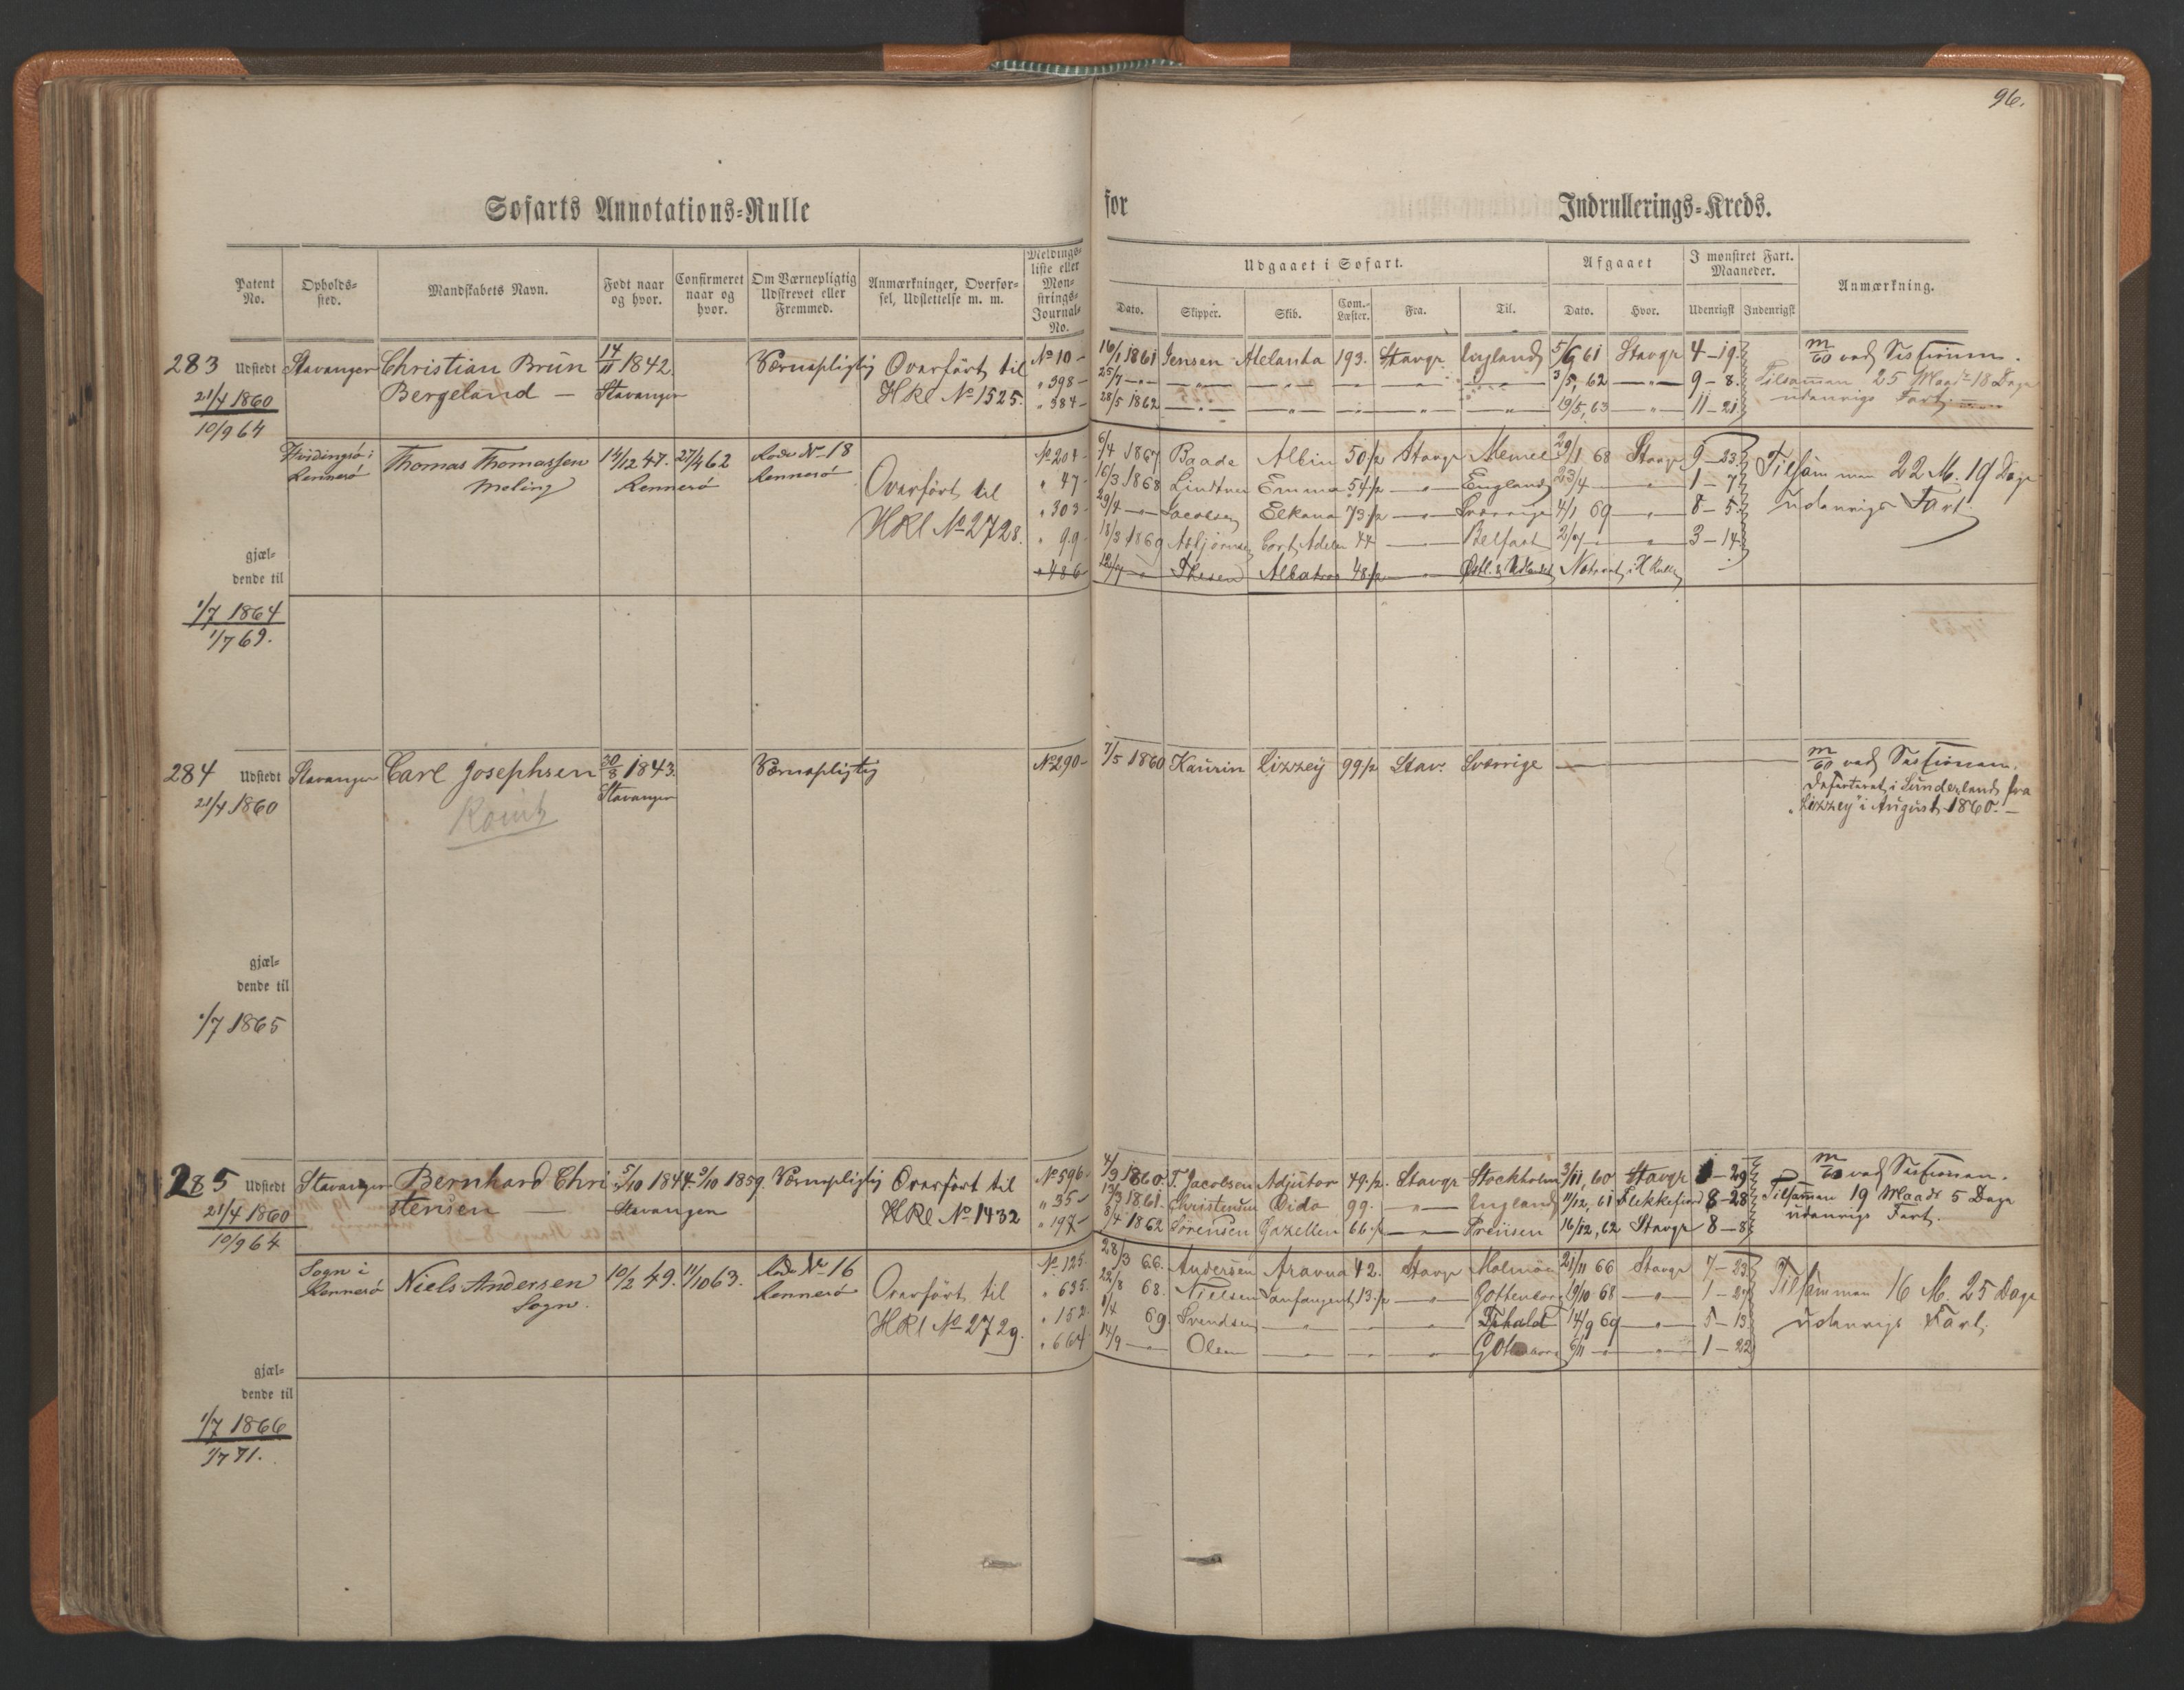 96.
Søfarts Annotations=Rulle for Indrullerings=Kreds.
Patent No.
Opholds=sted.
Mandskabets Navn.
Født naar og hvor.
Confirmeret naar og hvor.
Om Værnepligtig Udskrevet eller Fremmed.
Anmærkninger, Overførsel, Udslettelse m. m.
Meldings=liste eller Mønstrings=Journal=No.
Udgaaet i Søfart.
Dato. Skipper. Skib. Com.=Læster. Fra. Til.
Afgaaet
Dato. Hvor.
I mønstret Fart. Maaneder.
Udenrigsk Indenrigsk
Anmærkning.
283 Udstedt Stavanger Christian Brün 14/11 1842. Værnepligtig Overført til No 10 - 16/1 1861 Jensen Atelanta 193. Stavgr England 5/6 61 Stavgr 4-19. m/60 ved Sessionen.
21/4 1860 Bergeland — Stavanger HRl No 1525. " 398 - 25/7 — 3/5, 62 — " — 9-8. Tilsamman 25 Maad. 18 Dage
10/9 64 " 384 - 28/5 1862 — 19/5, 63 — " 11-21 udenrigs Fart
Hvidingsø i Rennesø Thomas Thomassen 14/12 47. 27/4 62 Rode No 18 No 204 - 6/4 1867 Baade Albin 50 1/2 Stavgr Memel 29/1 68 Stavgr 9-23. Tilsammen 22 M. 19 Dage
Meling Rennesø Rennesø Overført til " 47 - 16/3 1868 Lindtner Emma 54 1/2 — " — England 23/4 — 1-7 udenrigs Fart.
HRl No 2728. " 303 - 29/4 — Jacobsen Elkana 73 1/2 — " — Sverrige 4/1 69 — " — 8-5.
" 99 - 18/3 1869 Asbjørnsen Cort Adeler 44 — Belfast 2/7 — 3-14
gjæl=
dende til
" 486 - Albatros 48 1/2 — Noterat i H Rullen
1/7 1864
1/7 69.
284 Udstedt Stavanger Carl Josephsen 30/8 1843. Værnepligtig No 290 - 7/5 1860 Kaurin Lizzey 99 1/2 Stav. Sverrige — m/60 ved Sessionen.
21/4 1860 Stavanger Deserteret i Sunderland fra
"Lizzey" i August 1860. —
gjæl=
dende til
1/7 1865
285 Udstedt Stavanger Bernhard Chri= 5/10 1844. 9/10 1859. Værnepligtig Overført til No 596 - 4/9 1860. T. Jacobsen Adjutor 49 1/2. Stavgr Stockholm 3/11, 60 Stavgr 1-29 m/60 ved Sessionen.
21/4 1860 stensen — Stavanger HRl No 1432 " 35 - 1861. Christensen Dido 99. — " — England 11/12, 61 Flekkefjord 8-28 Tilsamman 19 Maadr 5 Dage
10/9 64 " 197 - 8/4 1862 Sørensen Gazellen 66 1/2 — Preüsen 16/12, 62 Stavgr 8-8 udenrigs Fart.
Sogn i Rennesø Niels Andersen 10/2 49. 11/10 63. Rode No 16 No 125 28/3 66. Andersen Aravna 42. Stavgr Malmöe 21/11 66 Stavgr 7-23 Tilsammen 16 M. 25 Dage
Sogn. Rennesø Overført til " 635. 22/8 68. Nielsen 13 1/2 — " — Gottenborg 19/10 68 — " — 1-27 udenrigs Fart.
HRl No 2729. " 152 1/4 69. Svendsen — Frhald 14/9 69 — " — 5-13
" 664 14/9 — Olsen — 6/11 — 1-22
gjæl=
dende til
1/7 1866
1/7 71.